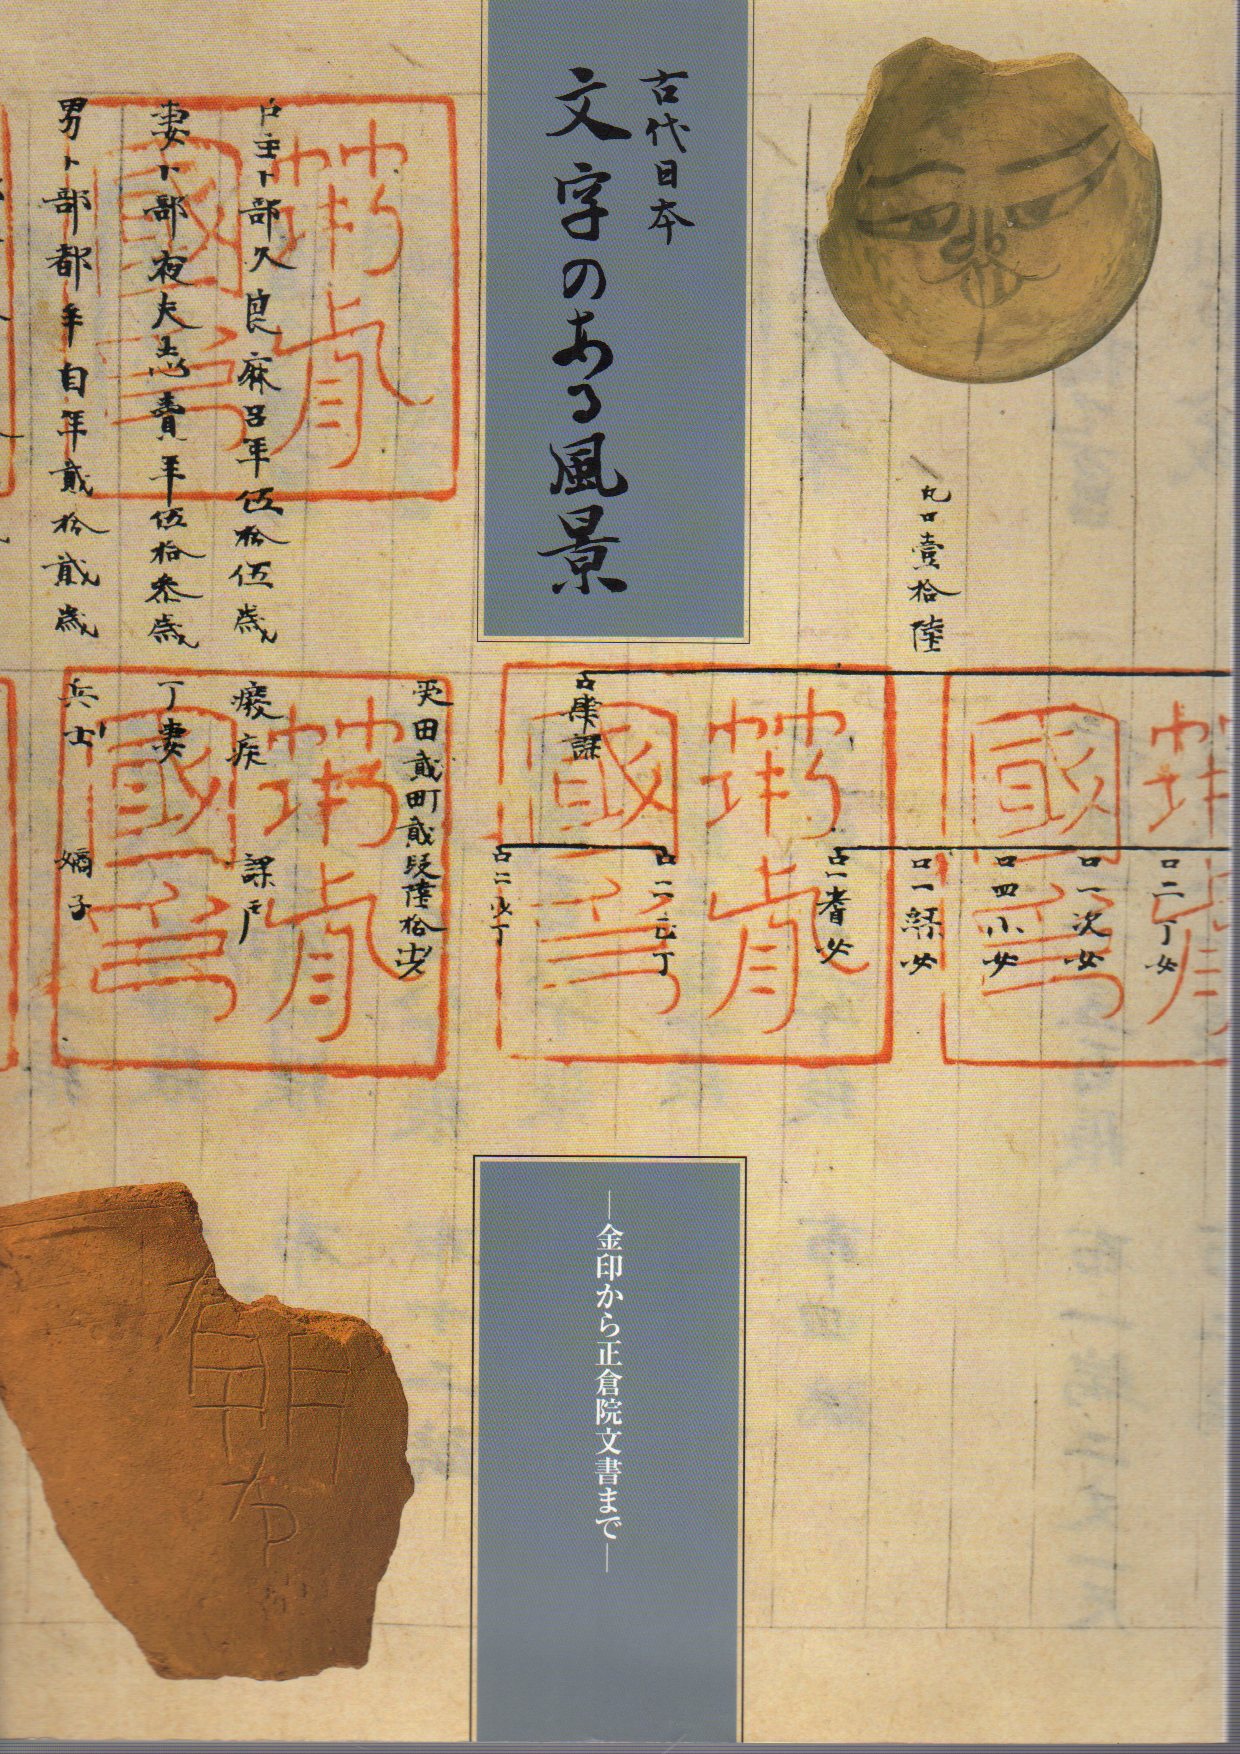 古代日本
文字のある風景
―金印から正倉院文書まで―
凡口壹拾陸
口二丁女
口一次女
口四小女
口一緑女
口一耆女
口二正丁
口肆課
口二少丁
受田貳町貳段陸拾歩
戸主卜部久良麻呂年伍拾伍歳 癈疾 課戸
妻卜部夜夫志賣年伍拾參歳 丁妻
男卜部都牟自年貳拾貳歳 兵士 嫡子